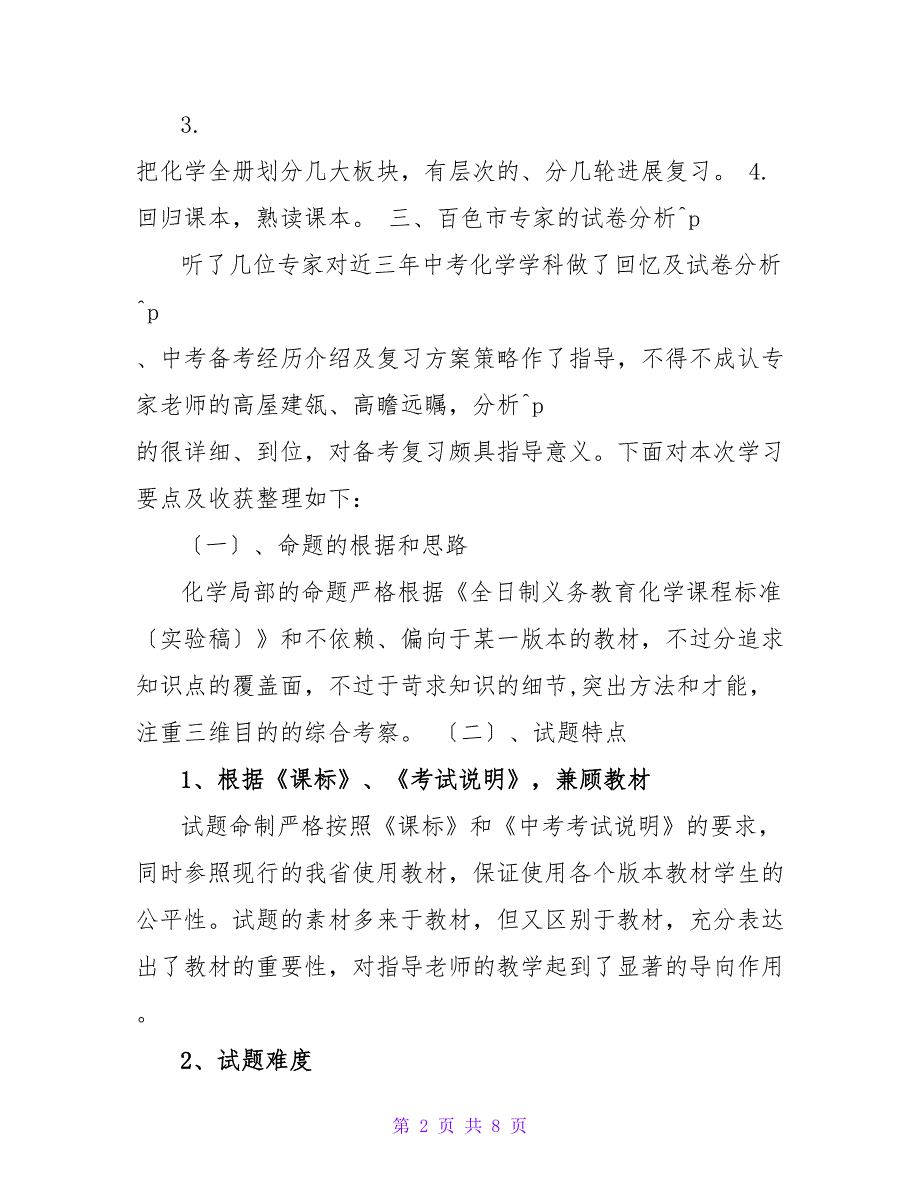 3.
把化学全册划分几大板块，有层次的、分几轮进展复习。 4.
回归课本，熟读课本。 三、百色市专家的试卷分析^p
听了几位专家对近三年中考化学学科做了回忆及试卷分析
^p
、中考备考经历介绍及复习方案策略作了指导，不得不成认专
家老师的高屋建瓴、高瞻远瞩，分析^p
的很详细、到位，对备考复习颇具指导意义。下面对本次学习
要点及收获整理如下：
〔一〕、命题的根据和思路
化学局部的命题严格根据《全日制义务教育化学课程标准
〔实验稿〕》和不依赖、偏向于某一版本的教材，不过分追求
知识点的覆盖面，不过于苛求知识的细节,突出方法和才能，
注重三维目的的综合考察。 〔二〕、试题特点
1、根据《课标》、《考试说明》，兼顾教材
试题命制严格按照《课标》和《中考考试说明》的要求，
同时参照现行的我省使用教材，保证使用各个版本教材学生的
公平性。试题的素材多来于教材，但又区别于教材，充分表达
出了教材的重要性，对指导老师的教学起到了显著的导向作用
。
2、试题难度
第 2 页 共 8 页